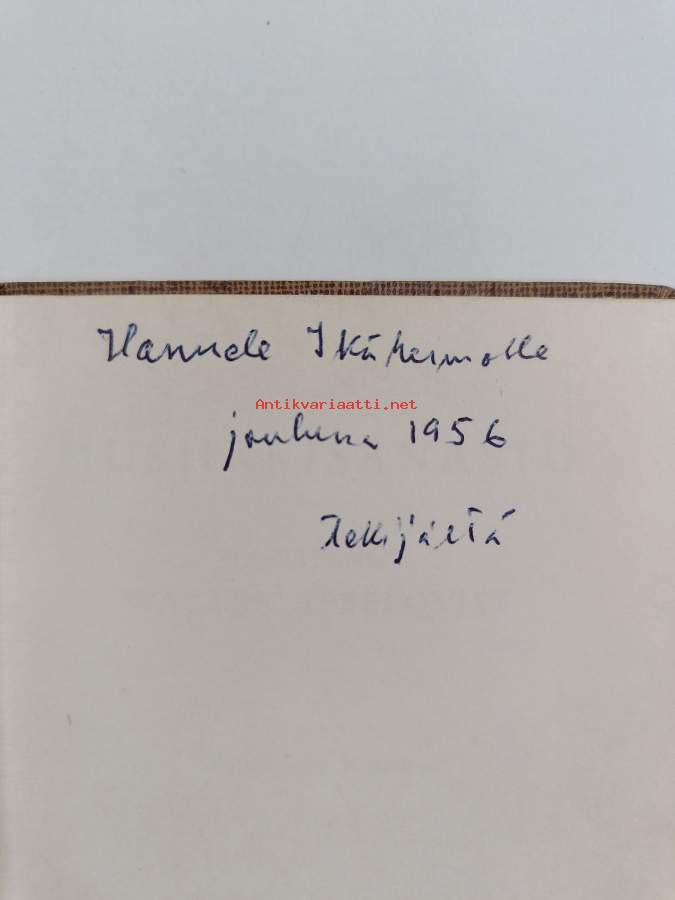 Hannele Ikäheimolle
Antikvariaatti.net
jouluna 1956
Tekijältä